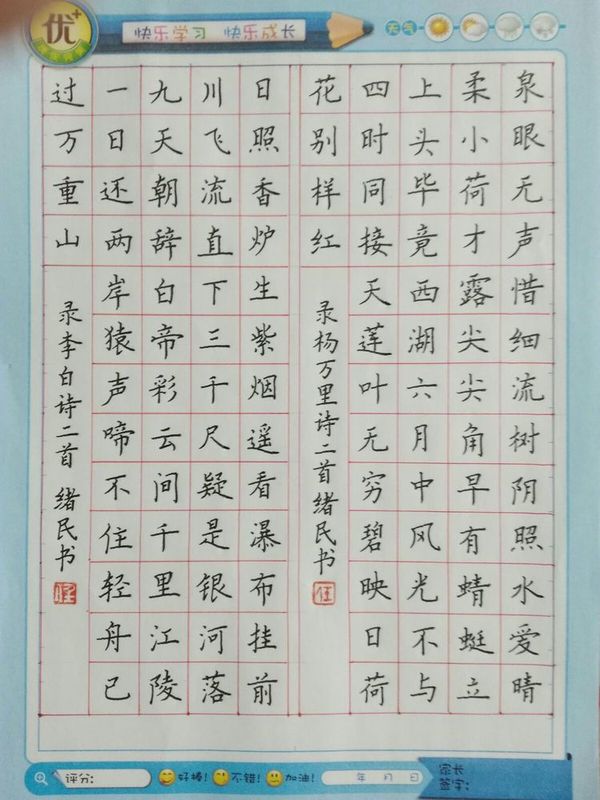 优+
快乐学习 快乐成长
天气
泉眼无声惜细流树阴照水爱晴
柔小荷才露尖尖角早有蜻蜓立
上头毕竟西湖六月中风光不与
四时同接天莲叶无穷碧映日荷
花别样红 录杨万里诗二首绪民书
日照香炉生紫烟遥看瀑布挂前
川飞流直下三千尺疑是银河落
九天朝辞白帝彩云间千里江陵
一日还两岸猿声啼不住轻舟已
过万重山 录李白诗二首 绪民书
评分: 好棒! 不错! 加油! 年 月 日
家长
签字: